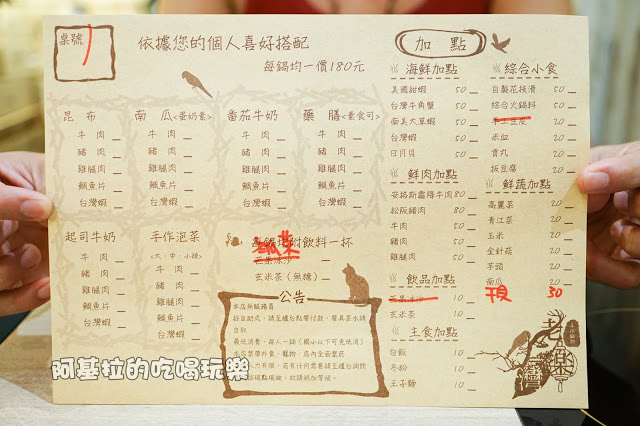 桌號
1
依據您的個人喜好搭配
每鍋均一價180元
昆布
牛肉
豬肉
雞腿肉
鯛魚片
台灣蝦
南瓜<蛋奶素>
牛肉
豬肉
雞腿肉
鯛魚片
台灣蝦
番茄牛奶
牛肉
豬肉
雞腿肉
鯛魚片
台灣蝦
藥膳<素食可>
牛肉
豬肉
雞腿肉
鯛魚片
台灣蝦
起司牛奶
牛肉
豬肉
雞腿肉
鯛魚片
台灣蝦
手作泡菜
(大、中、小辣)
牛肉
豬肉
雞腿肉
鯛魚片
台灣蝦
每鍋均附飲料一杯
芒果冰沙
玄米茶(無糖)
公告
本店無服務員
採自助式,請至櫃台點餐付款,餐具茶水請自取
最低消費,每人一鍋(國小以下可免低消)
本店禁帶外食、寵物,店內全面禁菸
加點
海鮮加點
美國甜蝦 50
台灣牛角蟹 50
南美大草蝦 50
台灣蝦 50
日月貝 50
鮮肉加點
安格斯霜降牛肉 80
松阪豬肉 80
牛肉 50
豬肉 50
雞腿肉 50
飲品加點
芒果冰沙 10
玄米茶 10
主食加點
白飯 10
冬粉 10
王子麵 10
綜合小食
自製花枝滑 50
綜合火鍋料 50
手工豆皮 20
米血 20
貢丸 20
板豆腐 20
鮮蔬加點
高麗菜 20
青江菜 20
玉米 20
金針菇 20
芋頭 20
南瓜 20
30
阿基拉的吃喝玩樂